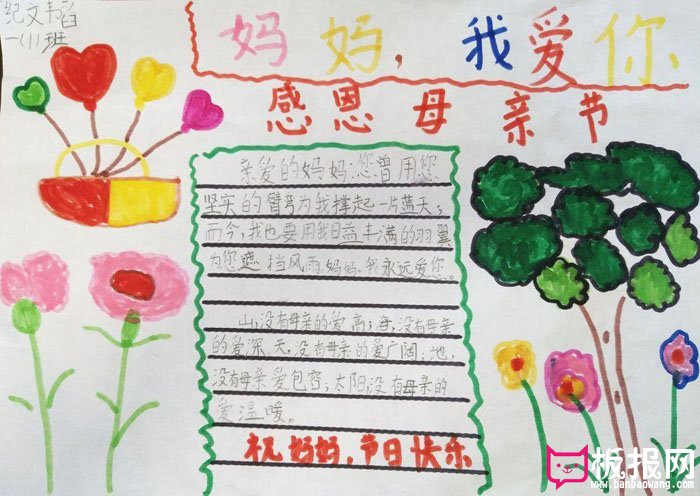 纪文韵
一(1)班
妈妈,我爱你
感恩母亲节
亲爱的妈妈:您曾用您
坚实的臂弯为我撑起一片蓝天;
而今,我也要用我日益丰满的羽翼
为您遮挡风雨,妈妈,我永远爱您。
山,没有母亲的爱高;海,没有母亲
的爱深,天,没有母亲的爱广阔,地,
没有母亲爱包容;太阳,没有母亲的
爱温暖。
祝妈妈,节日快乐
板报网
www.banbaowang.com